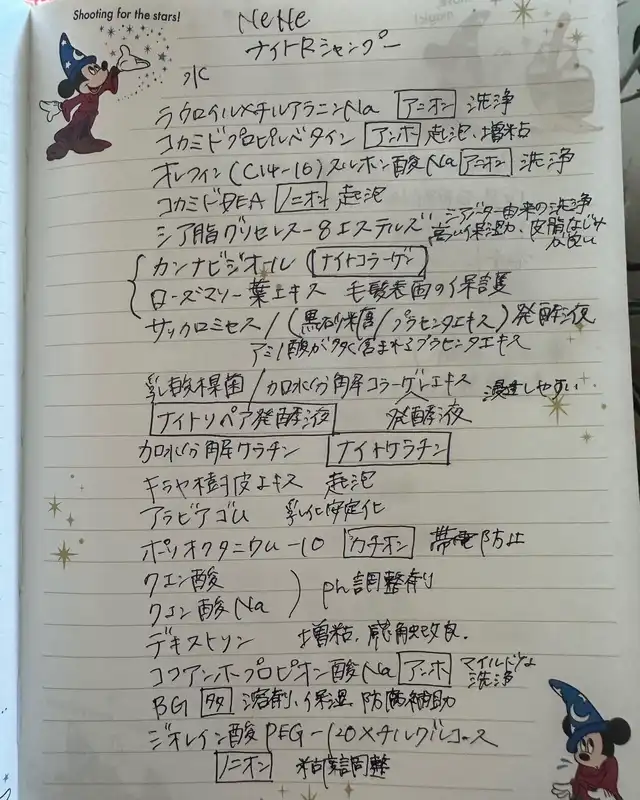 Shooting for the stars!
NeHe
ナイトRシャンプー
水
ラウロイルメチルアラニンNa アニオン 洗浄
コカミドプロピルベタイン アンホ 起泡、増粘
オレフィン(C14-16)スルホン酸Na アニオン 洗浄
コカミドDEA ノニオン 起泡
シア脂グリセレス-8エステルズ シアバター由来の洗浄
高い保湿力、皮脂なじみが良い
カンナビジオール (ナイトコラーゲン)
ローズマリー葉エキス 毛髪表面の保護
サッカロミセス/(黒砂糖/プラセンタエキス)発酵液
アミノ酸が多く含まれるプラセンタエキス
乳酸桿菌/加水分解コラーゲンエキス 浸透しやすい
ナイトリペア発酵液 発酵液
加水分解ケラチン ナイトケラチン
キラヤ樹皮エキス 起泡
アラビアゴム 乳化安定化
ポリオクタニウム-10 カチオン 帯電防止
クエン酸
クエン酸Na ph調整剤
デキストリン 増粘、感触改良.
ココアンホプロピオン酸Na アンホ マイルドな洗浄
BG 多 溶剤、保湿 防腐補助
ジオレイン酸PEG-120メチルグルコース
ノニオン 粘度調整